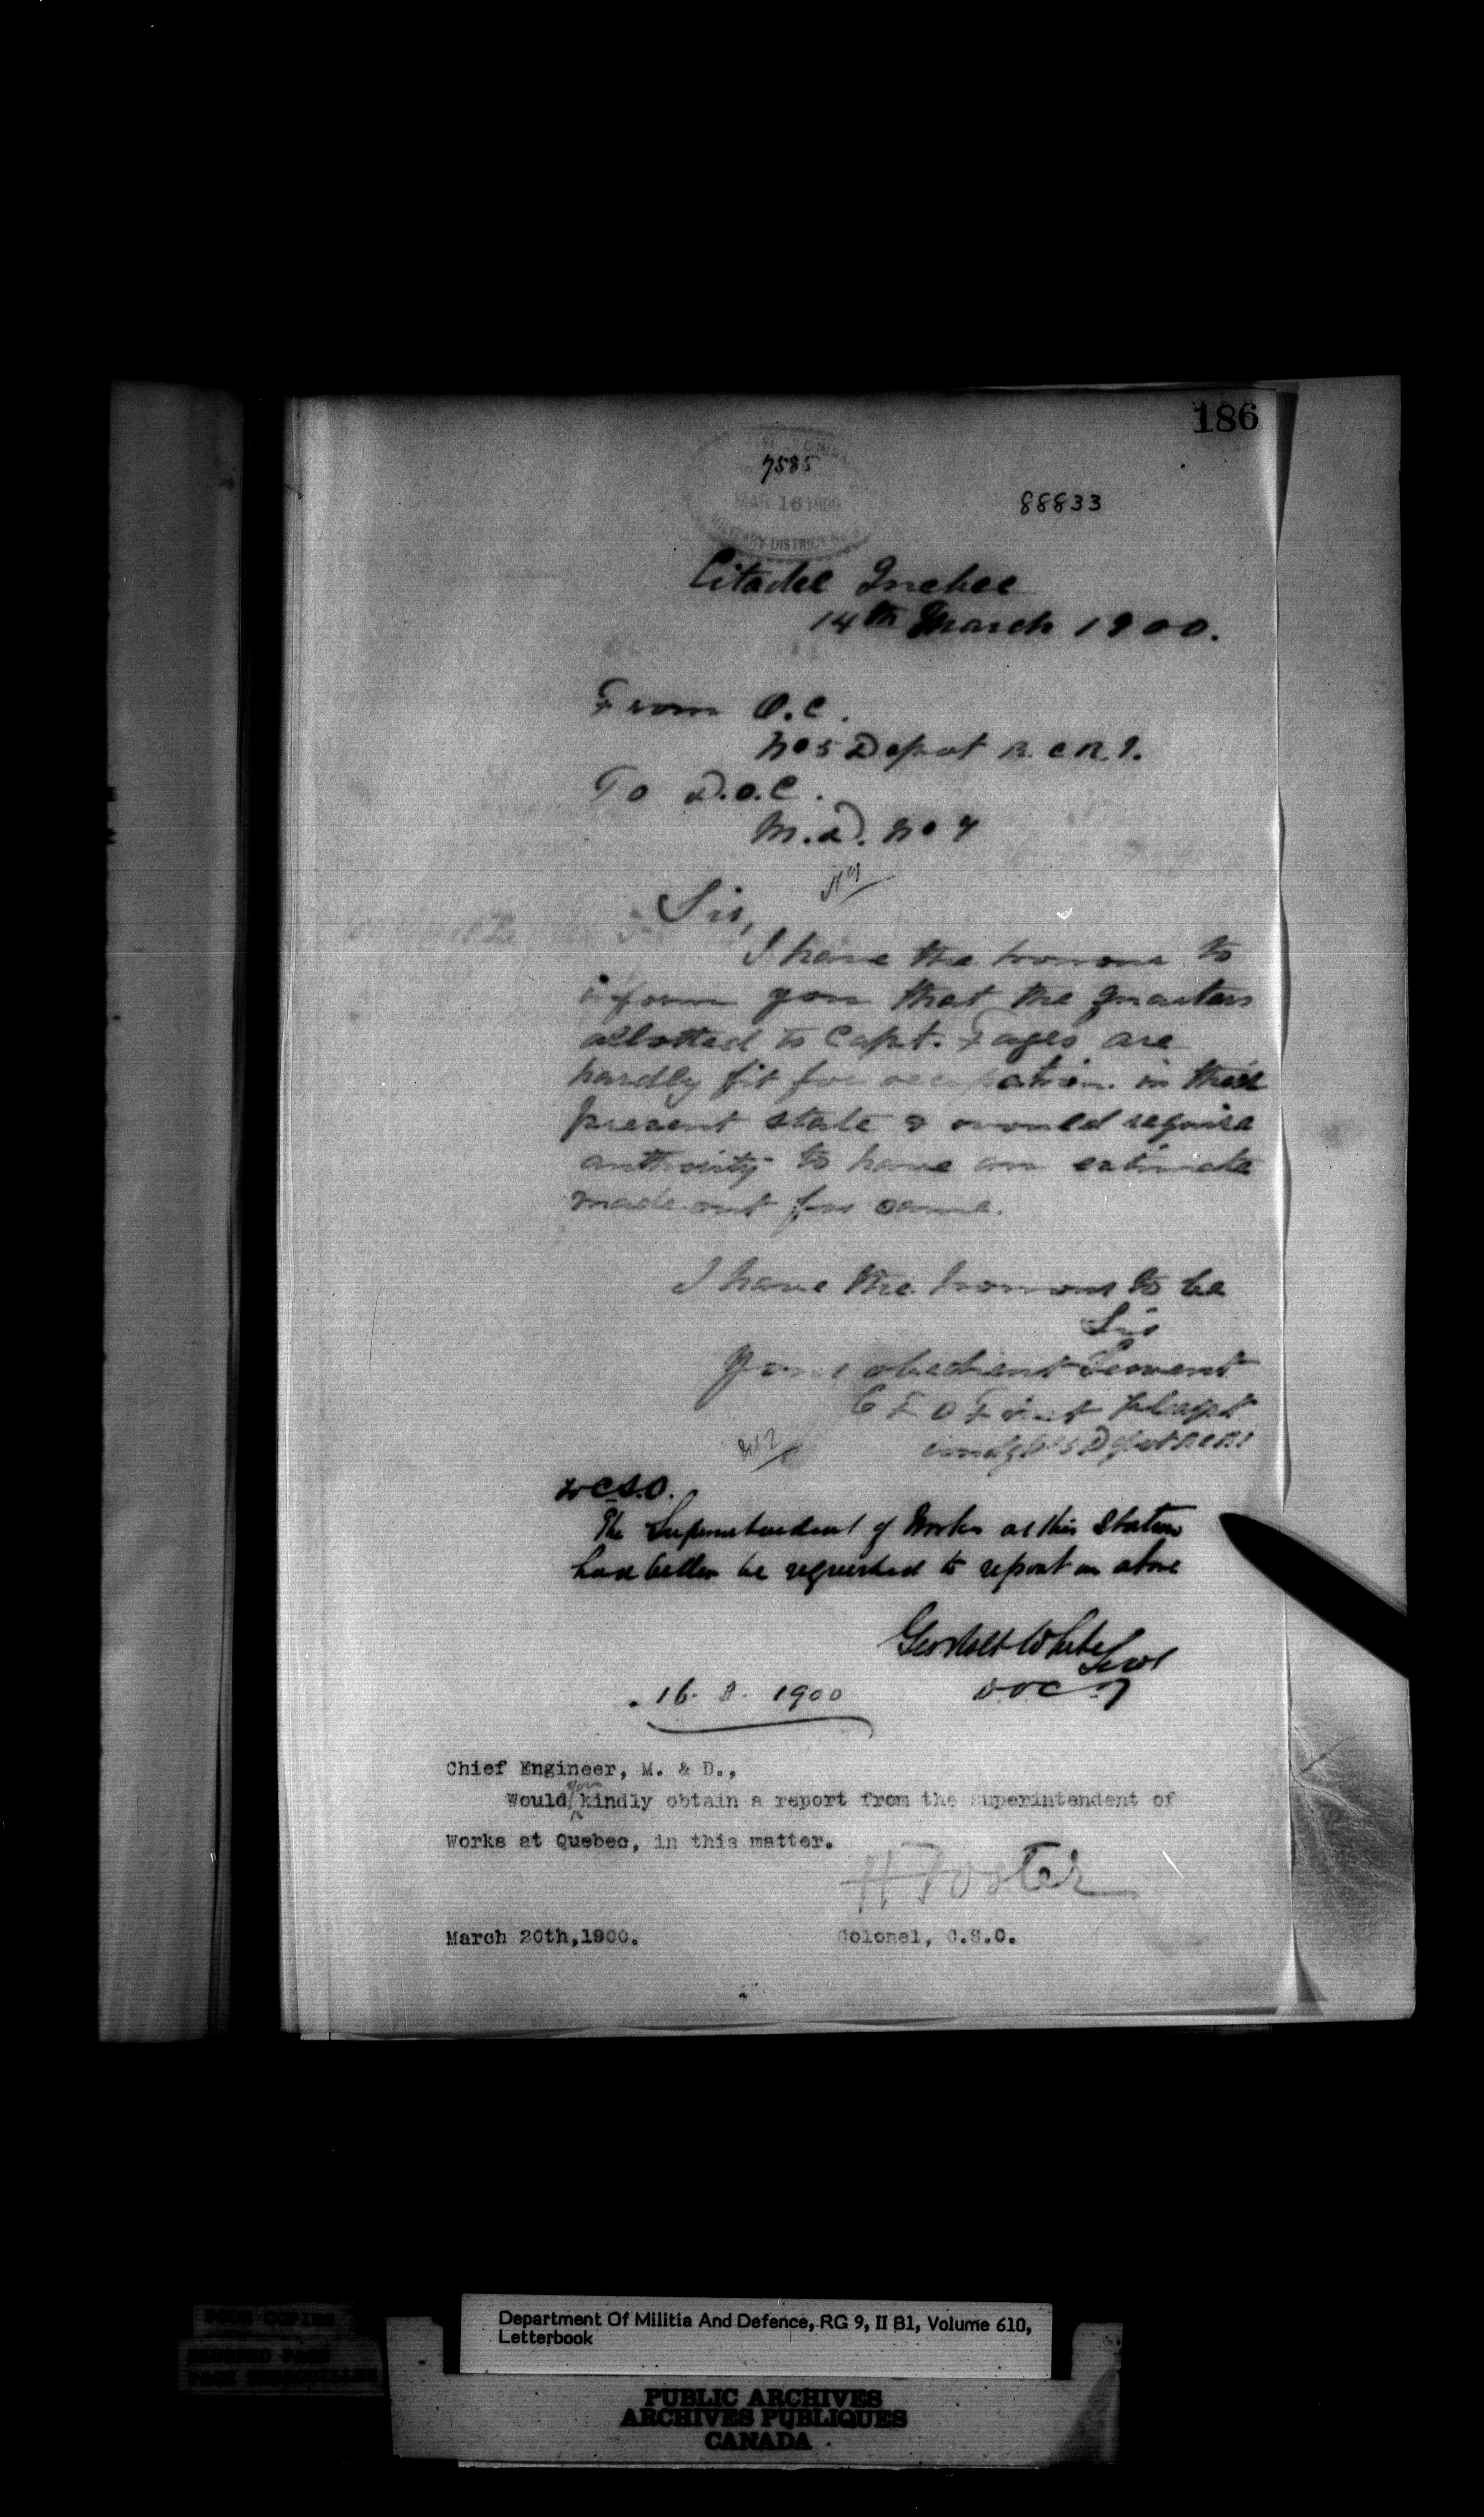 186
7585
MAR 16 1900
MILITARY DISTRICT
88833
Citadel Quebec
14th March 1900.
From O.C.
No 5 Depot R.C.R.I.
To D.O.C.
M.D. No 7
Sir,
I have the honour to
inform you that the quarters
allotted to Capt. Fages are
hardly fit for occupation in their
present state & would require
authority to have an estimate
made out for same.
I have the honour to be
Sir
Your obedient Servant
Capt
Comdg No 5 Depot RCRI
To C.S.O.
The Superintendent of Works at this Station
had better be requested to report on above
Geo Holt White
D.O.C. 7
16. 3. 1900
Chief Engineer, M. & D.,
Would you kindly obtain a report from the Superintendent of
Works at Quebec, in this matter.
H Foster
March 20th,1900. Colonel, C.S.O.
POOR COPIES
BLURRED PAGE
PAGE EMBROUILLEE
Department Of Militia And Defence, RG 9, II B1, Volume 610,
Letterbook
PUBLIC ARCHIVES
ARCHIVES PUBLIQUES
CANADA